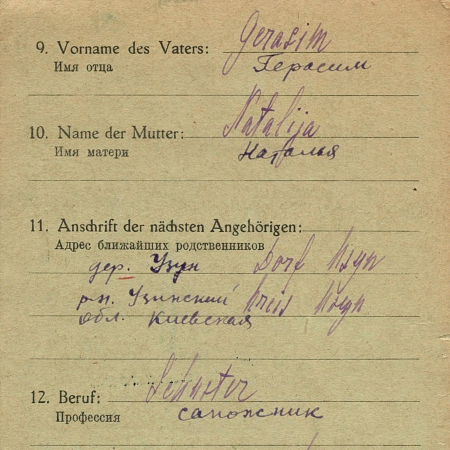 9. Vorname des Vaters: Gerasim
Имя отца Герасим
10. Name der Mutter: Natalija
Имя матери Наталья
11. Anschrift der nächsten Angehörigen:
Адрес ближайших родственников
дер. Узин Dorf Usyn
р-н. Узинский Kreis Usyn
обл. Киевская
12. Beruf: Schuster
Профессия сапожник